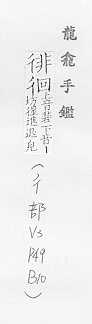 龍龕手鑑
徘徊
上音裴下音丨
彷徨進退皃
(彳部 Vs P49 B10)